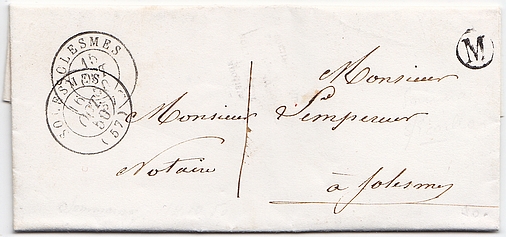 SOLESMES
15
SOLESMES
16
(57)
M
Monsieur
Monsieur Lempereur
Notaire
à Solesmes